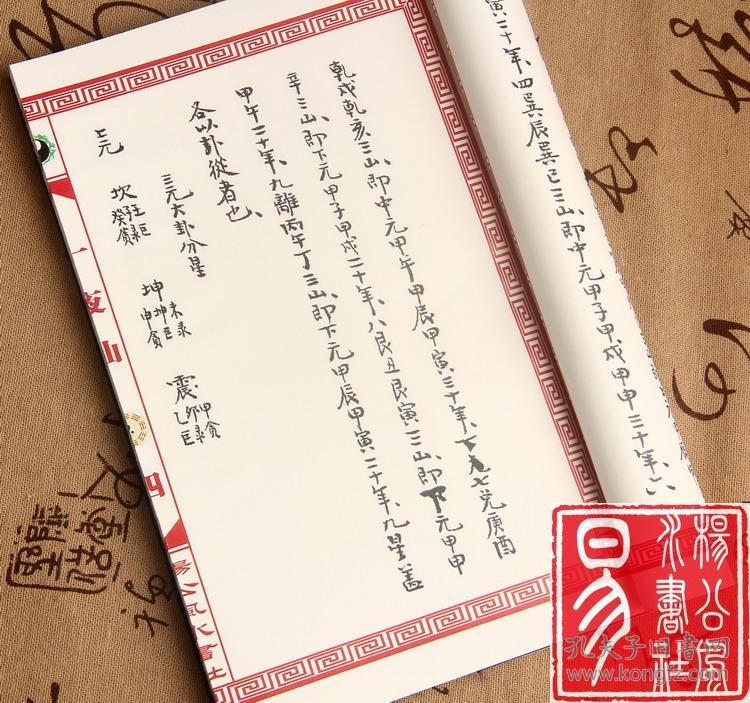 寅二十年、四巽辰巽巳三山、即中元甲子甲戌甲申三十年、六
乾戌乾亥三山、即中元甲午甲辰甲寅三十年、下元七兑庚酉
辛三山、即下元甲子甲戌二十年、八艮丑艮寅三山、即下元甲申
甲午二十年、九離丙午丁三山、即下元甲辰甲寅二十年、九星盖
各以卦從者也、
三元大卦分星
上元
坎
壬巨
子祿
癸貪
坤
未祿
坤巨
申貪
震
甲貪
卯祿
乙巨
四
楊公風水書社
易
楊公風水書社
孔夫子旧书网
www.kongfz.com